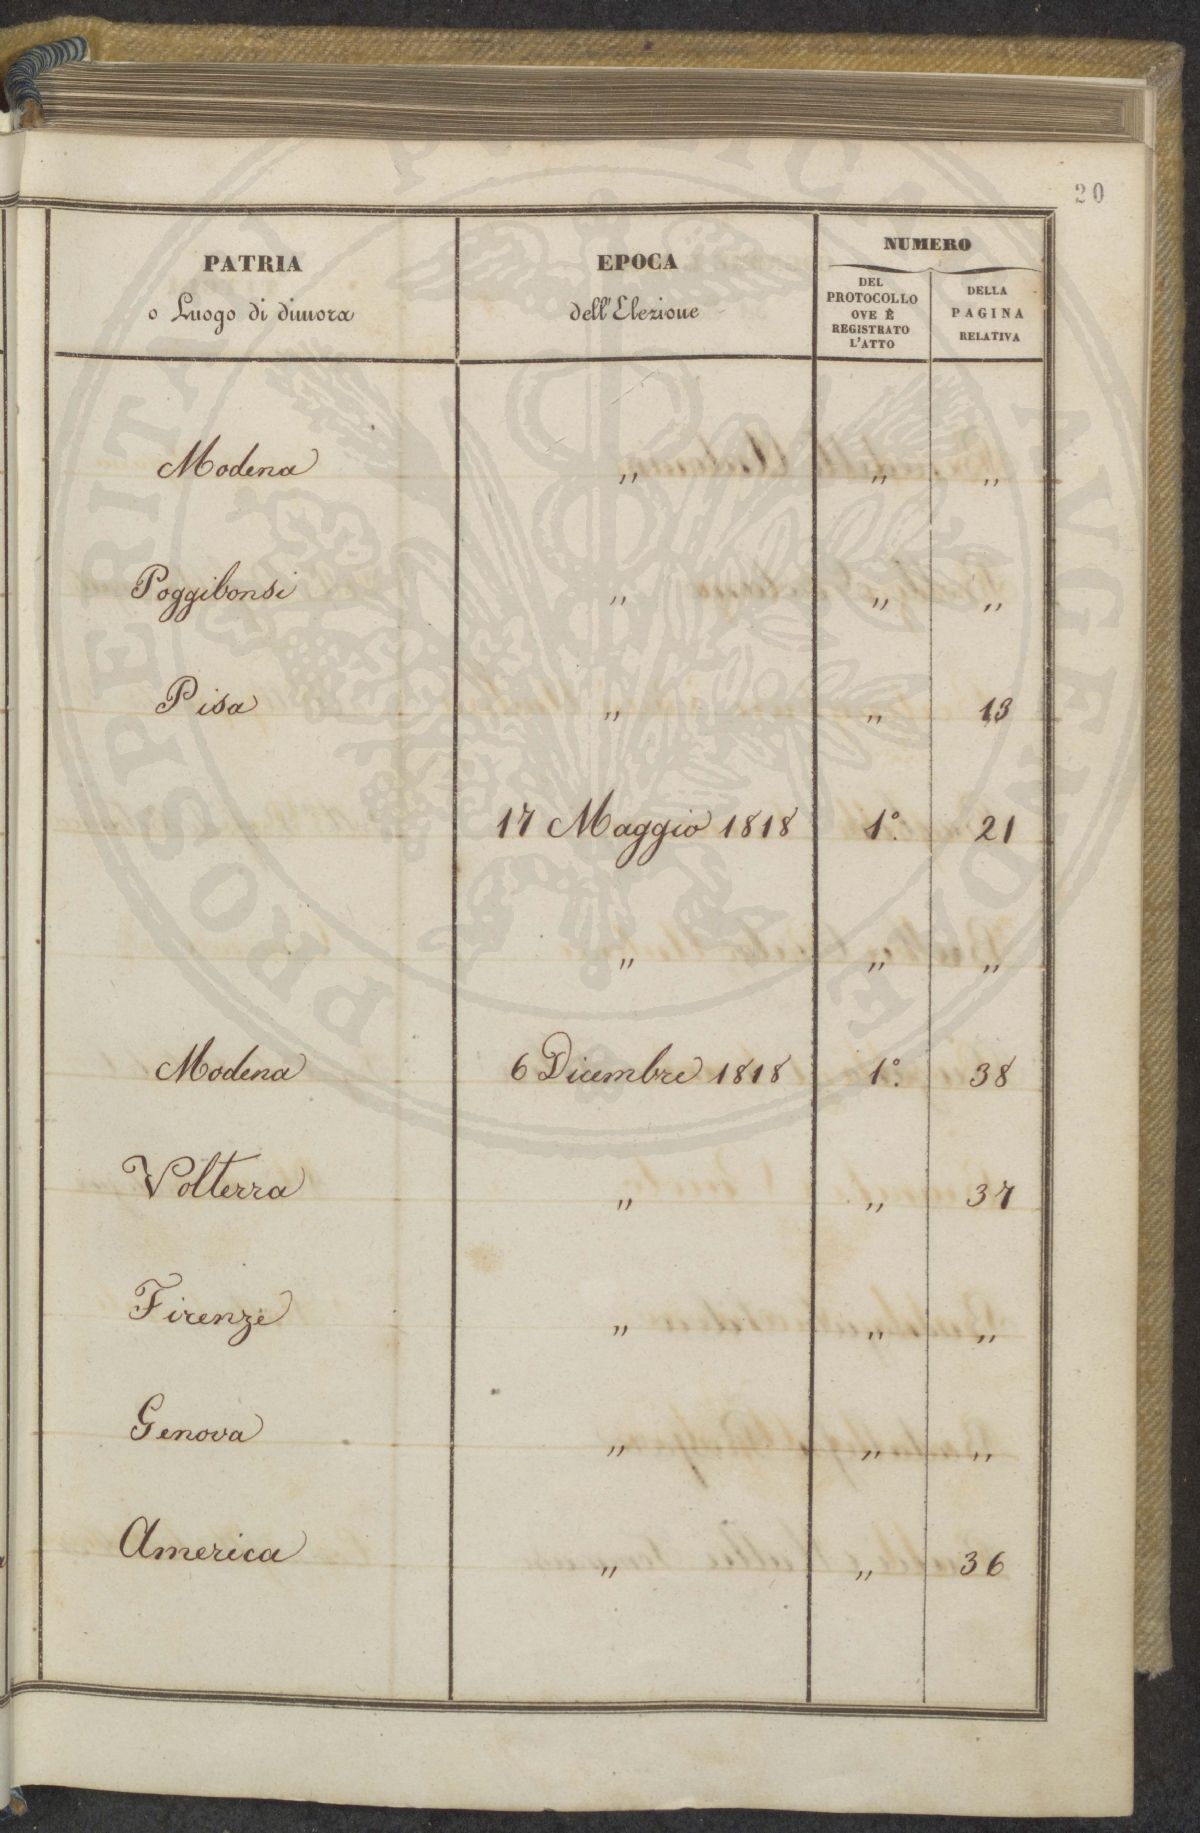 20
PATRIA
o Luogo di dimora
EPOCA
dell'Elezione
NUMERO
DEL
PROTOCOLLO
OVE È
REGISTRATO
L'ATTO
DELLA
PAGINA
RELATIVA
Modena " " "
Poggibonsi " " "
Pisa " " 13
17 Maggio 1818 1º. 21
" " "
Modena 6 Dicembre 1818 1º. 38
Volterra " " 37
Firenze " " "
Genova " " "
America " " 36
PROSPERITATI PUBLICAE AUGENDAE